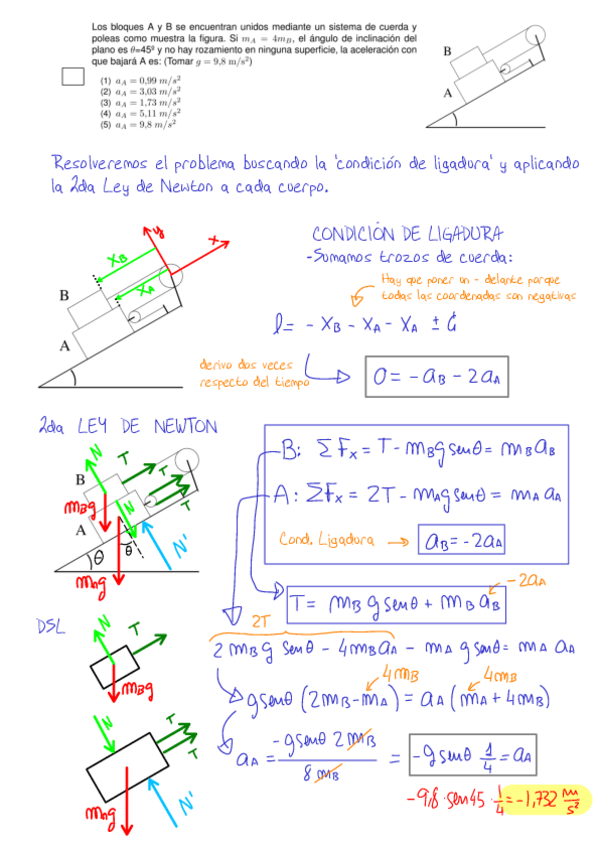 Los bloques A y B se encuentran unidos mediante un sistema de cuerda y
poleas como muestra la figura. Si m_A = 4m_B, el ángulo de inclinación del
plano es θ=45º y no hay rozamiento en ninguna superficie, la aceleración con
que bajará A es: (Tomar g = 9,8 m/s²)
(1) a_A = 0,99 m/s²
(2) a_A = 3,03 m/s²
(3) a_A = 1,73 m/s²
(4) a_A = 5,11 m/s²
(5) a_A = 9,8 m/s²
B
A
Resolveremos el problema buscando la 'condición de ligadura' y aplicando
la 2da Ley de Newton a cada cuerpo.
y
x
X_B
X_A
B
A
CONDICIÓN DE LIGADURA
-Sumamos trozos de cuerda:
Hay que poner un - delante porque
todas las coordenadas son negativas
l = - X_B - X_A - X_A ±
derivo dos veces
respecto del tiempo
0 = - a_B - 2a_A
2da LEY DE NEWTON
N
T
T
T
T
B
m_B g
N
A
θ
θ
N'
m_A g
B: ΣF_x = T - m_B g senθ = m_B a_B
A: ΣF_x = 2T - m_A g senθ = m_A a_A
Cond. Ligadura → a_B = -2a_A
-2a_A
T = m_B g senθ + m_B a_B
DSL
N
T
m_B g
N
T
T
N'
m_A g
2T
2 m_B g senθ - 4m_B a_A - m_A g senθ = m_A a_A
4m_B
4m_B
g senθ (2m_B - m_A) = a_A (m_A + 4m_B)
a_A = -g senθ 2 m_B / 8 m_B = -g senθ 1/4 = a_A
-9,8 · sen45 · 1/4 = -1,732 m/s²